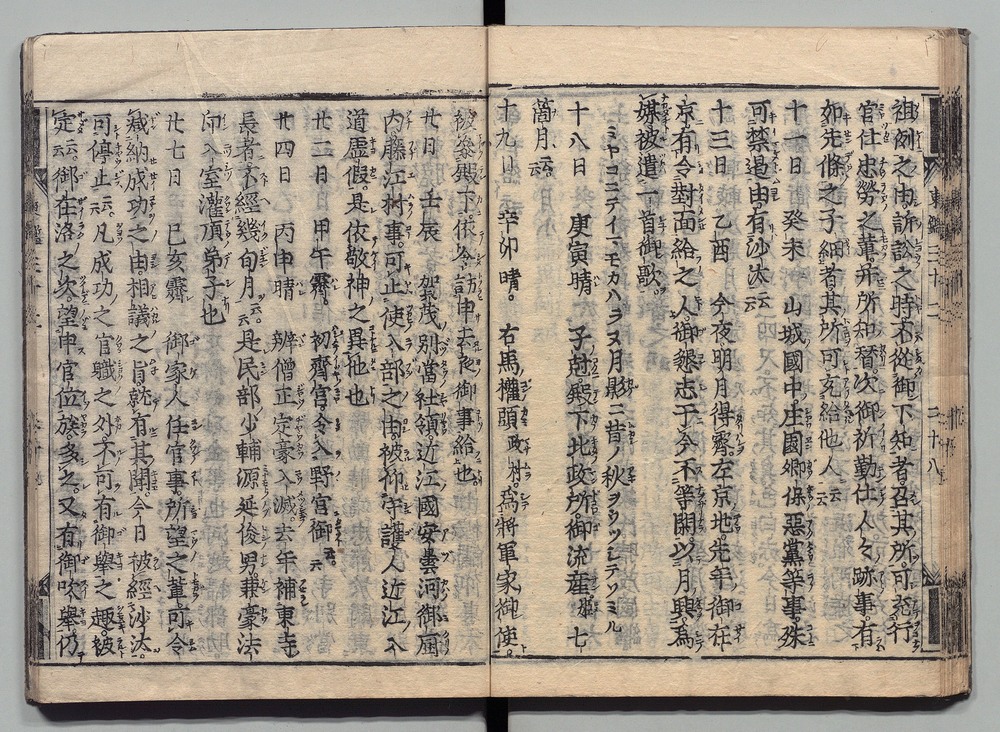 祖例之由訴訟之時不從御下知者召其所可怒行
官仕忠勞之輩幷所知替次御祈勤仕人々跡事有
如先條之子細者其所可充給他人云云
十一日 癸未 山城國中庄國郷保惡黨等事殊
可禁遏由有沙汰云云
十三日 乙酉 今夜明月得霽左京地先年御在
京有令對面給之人御懇志于今不等閑以月興爲
媒被遣一首御歌
ミヤコニテイマモカハラヌ月影ニ昔ノ秋ヲウツシテソミル
十八日 庚寅 晴 子尅殿下北政所御流産七
箇月云云
十九日 辛卯 晴 右馬權頭政村爲將軍家御使
被參殿下依令訪申去夜御事給也
廿日 壬辰 賀茂別當社領近江國安曇河御厨
内藤江村事可止使入部之由被仰守護人近江入
道虚假是依敬神之異他也
廿二日 甲午 霽 初齊宮令入野宮御云云
廿四日 丙申 晴 辨僧正定豪入滅去年補東寺
長者不經幾旬月云云是民部少輔源延俊男兼豪法
印入室灌頂弟子也
廿七日 己亥 霽 御家人任官事所望之輩可令
減納成功之由相議之旨就有其聞今日被經沙汰
可停止云云凡成功之官職之外不可有御擧之趣被
定云云御在洛之次望申官位族多之又有御吹擧仍
東鑑三十二
二十八